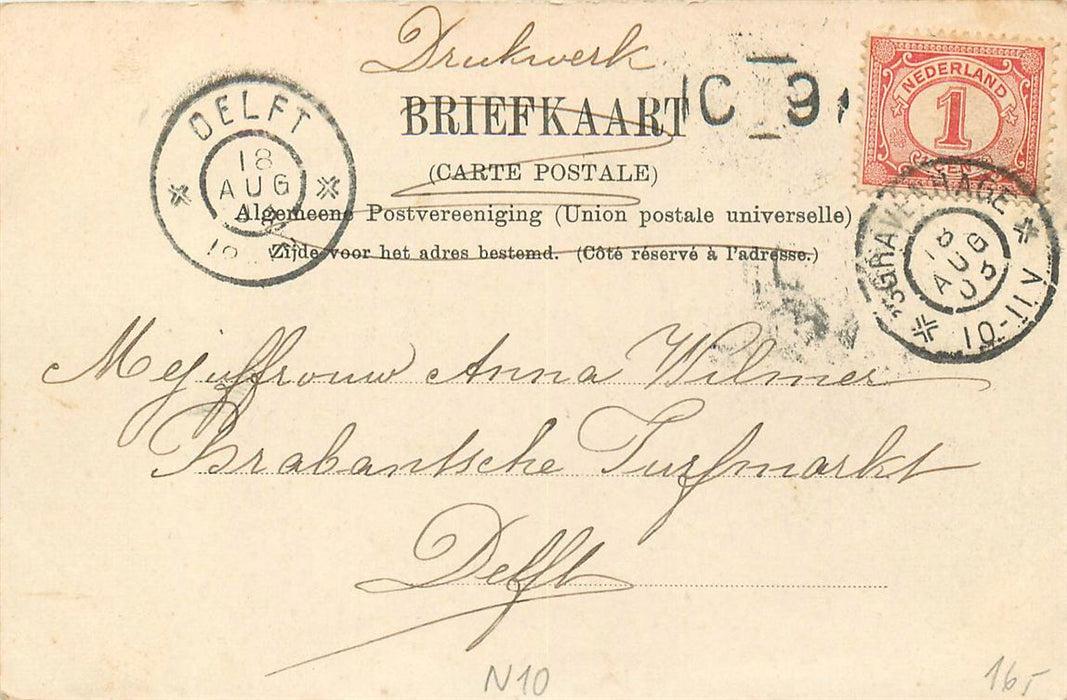 Drukwerk
BRIEFKAART
(CARTE POSTALE)
Algemeene Postvereeniging (Union postale universelle)
Zijde voor het adres bestemd. (Côté réservé à l'adresse.)
C 9
NEDERLAND
1
CENT
DELFT
18
AUG
'SGRAVENHAGE
18
AUG
03
10-11V
Mejuffrouw Anna Wilmer
Brabantsche Turfmarkt
Delft
N10
16,-